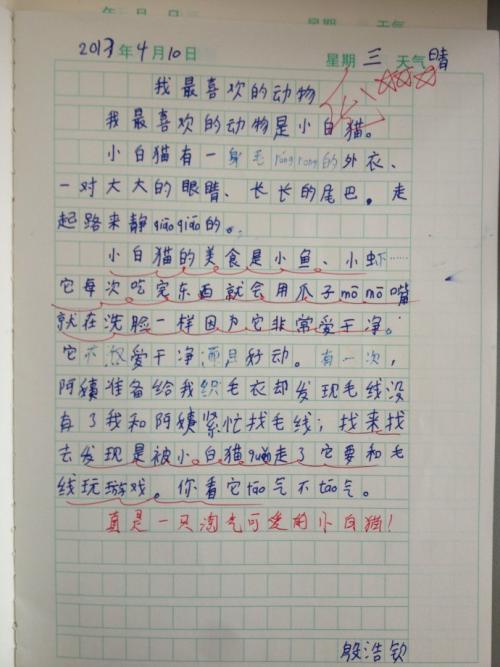 2013年4月10日 星期 三 天气 晴
我最喜欢的动物
我最喜欢的动物是小白猫。
小白猫有一身毛róng rong的外衣、
一对大大的眼睛、长长的尾巴。走
起路来静qiāo qiāo的。
小白猫的美食是小鱼、小虾……
它每次吃完东西就会用爪子mō mō嘴
就在洗脸一样因为它非常爱干净。
它不仅爱干净而且好动。有一次，
阿姨准备给我织毛衣却发现毛线没
有了我和阿姨紧忙找毛线；找来找
去发现是被小白猫 走了它要和毛
线玩游戏。你看它táo气不táo气。
真是一只淘气可爱的小白猫！
殷浩钦